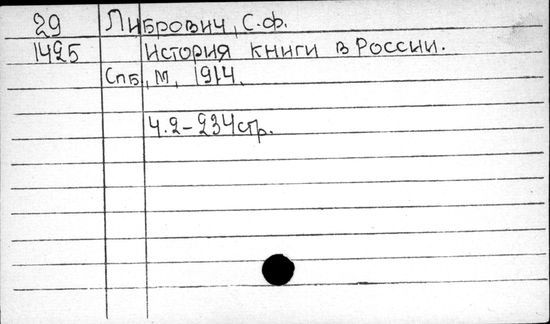 29 Либрович, С.Ф.
1425 История книги в России.
Спб, М, 1914.
Ч.2-234стр.